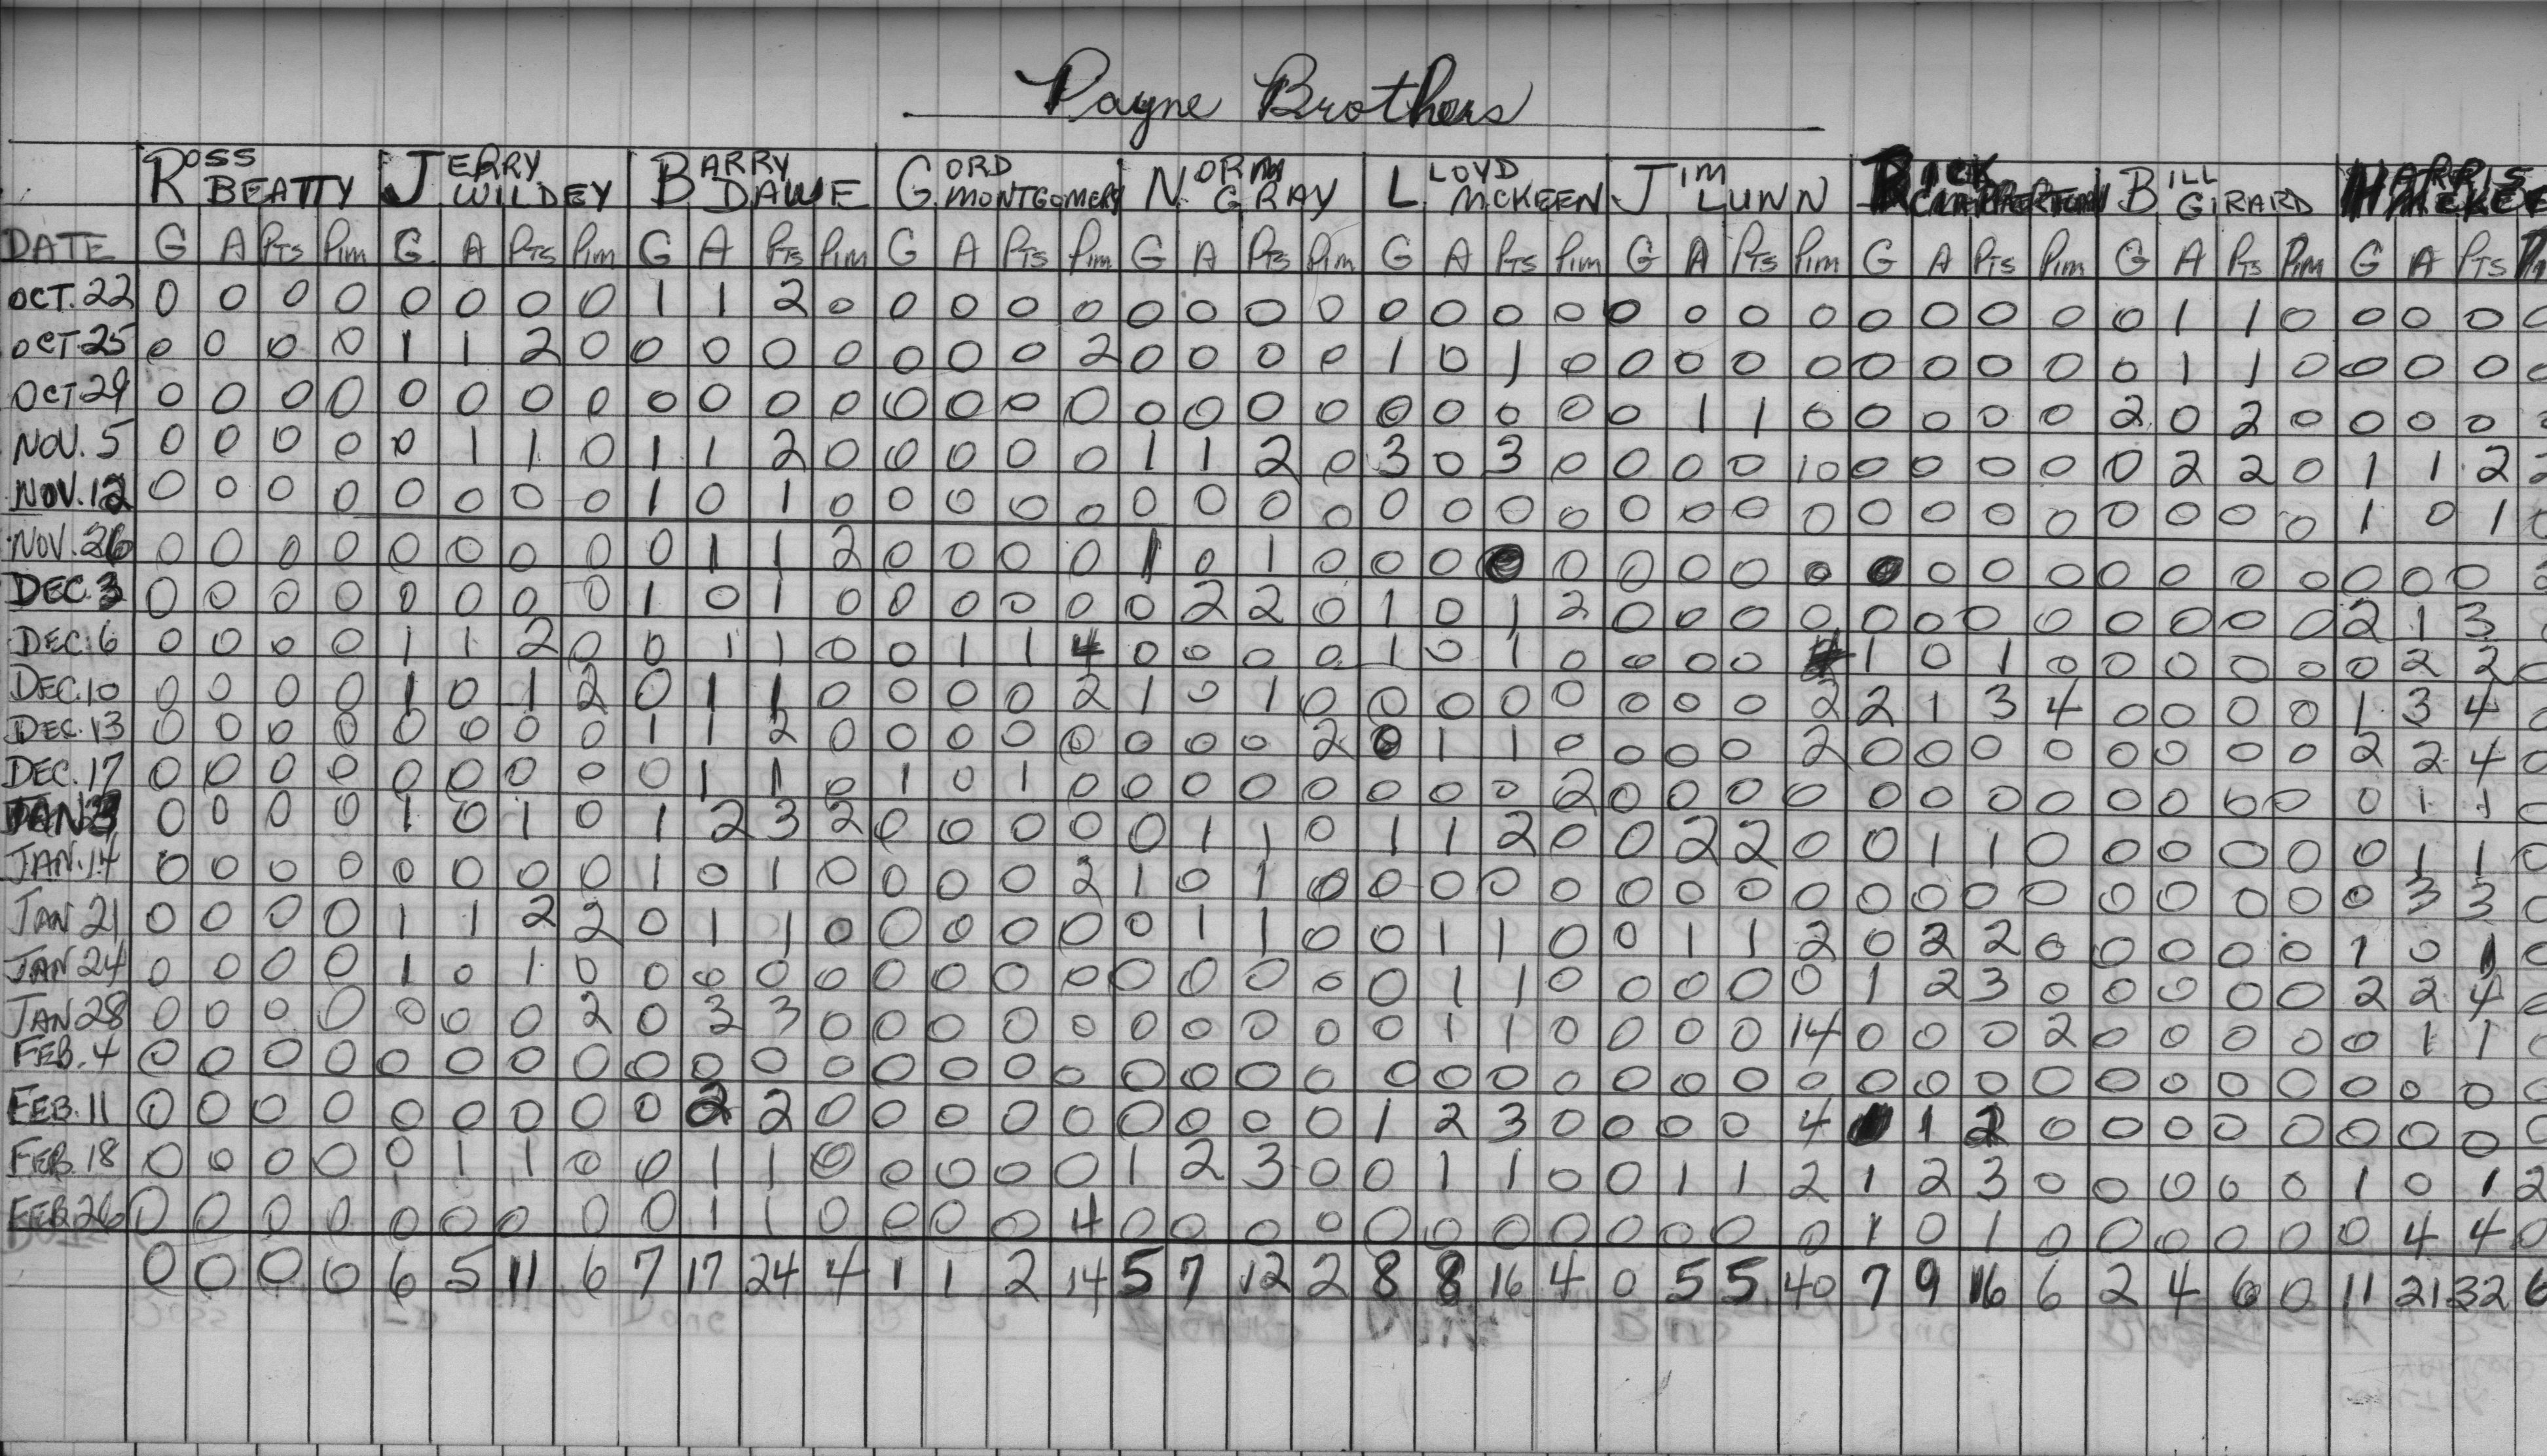 Payne Brothers
ROSS BEATTY JERRY WILDEY BARRY DAWE GORD MONTGOMERY NORM GRAY LLOYD MCKEEN JIM LUNN RICK BILL GIRARD HARRIS
DATE G A PTS Pim G A PTS Pim G A PTS Pim G A PTS Pim G A PTS Pim G A PTS Pim G A PTS Pim G A PTS Pim G A PTS Pim G A PTS
OCT. 22 0 0 0 0 0 0 0 0 1 1 2 0 0 0 0 0 0 0 0 0 0 0 0 0 0 0 0 0 0 0 0 0 0 1 1 0 0 0 0 0
OCT 25 0 0 0 0 1 1 2 0 0 0 0 0 0 0 0 2 0 0 0 0 1 0 1 0 0 0 0 0 0 0 0 0 0 1 1 0 0 0 0 0
OCT 29 0 0 0 0 0 0 0 0 0 0 0 0 0 0 0 0 0 0 0 0 0 0 0 0 0 1 1 0 0 0 0 0 2 0 2 0 0 0 0
NOV. 5 0 0 0 0 0 1 1 0 1 1 2 0 0 0 0 0 1 1 2 0 3 0 3 0 0 0 0 10 0 0 0 0 0 2 2 0 1 1 2 2
NOV. 12 0 0 0 0 0 0 0 0 1 0 1 0 0 0 0 0 0 0 0 0 0 0 0 0 0 0 0 0 0 0 0 0 0 0 0 0 1 0 1 0
NOV. 26 0 0 0 0 0 0 0 0 0 1 1 2 0 0 0 0 1 0 1 0 0 0 0 0 0 0 0 0 0 0 0 0 0 0 0 0 0 0 0
DEC. 3 0 0 0 0 0 0 0 0 1 0 1 0 0 0 0 0 0 2 2 0 1 0 1 2 0 0 0 0 0 0 0 0 0 0 0 0 2 1 3
DEC. 6 0 0 0 0 1 1 2 0 0 1 1 0 0 1 1 4 0 0 0 0 1 0 1 0 0 0 0 4 1 0 1 0 0 0 0 0 0 2 2 0
DEC. 10 0 0 0 0 1 0 1 2 0 1 1 0 0 0 0 2 1 0 1 0 0 0 0 0 0 0 0 2 2 1 3 4 0 0 0 0 1 3 4 0
DEC. 13 0 0 0 0 0 0 0 0 1 1 2 0 0 0 0 0 0 0 0 2 0 1 1 0 0 0 0 2 0 0 0 0 0 0 0 0 2 2 4 0
DEC. 17 0 0 0 0 0 0 0 0 0 1 1 0 1 0 1 0 0 0 0 0 0 0 0 2 0 0 0 0 0 0 0 0 0 0 0 0 0 1 1 0
JAN 0 0 0 0 1 0 1 0 1 2 3 2 0 0 0 0 0 1 1 0 1 1 2 0 0 2 2 0 0 1 1 0 0 0 0 0 0 1 1 0
JAN. 14 0 0 0 0 0 0 0 0 1 0 1 0 0 0 0 2 1 0 1 0 0 0 0 0 0 0 0 0 0 0 0 0 0 0 0 0 0 3 3 0
JAN 21 0 0 0 0 1 1 2 2 0 1 1 0 0 0 0 0 0 1 1 0 0 1 1 0 0 1 1 2 0 2 2 0 0 0 0 0 1 0 1 0
JAN 24 0 0 0 0 1 0 1 0 0 0 0 0 0 0 0 0 0 0 0 0 0 1 1 0 0 0 0 0 1 2 3 0 0 0 0 0 2 2 4 0
JAN 28 0 0 0 0 0 0 0 2 0 3 3 0 0 0 0 0 0 0 0 0 0 1 1 0 0 0 0 14 0 0 0 2 0 0 0 0 0 1 1 0
FEB. 4 0 0 0 0 0 0 0 0 0 0 0 0 0 0 0 0 0 0 0 0 0 0 0 0 0 0 0 0 0 0 0 0 0 0 0 0 0 0 0 0
FEB. 11 0 0 0 0 0 0 0 0 0 2 2 0 0 0 0 0 0 0 0 0 1 2 3 0 0 0 0 4 1 2 0 0 0 0 0 0 0 0 0
FEB. 18 0 0 0 0 0 1 1 0 0 1 1 0 0 0 0 0 1 2 3 0 0 1 1 0 0 1 1 2 1 2 3 0 0 0 0 0 1 0 1 2
FEB 26 0 0 0 0 0 0 0 0 0 1 1 0 0 0 0 4 0 0 0 0 0 0 0 0 0 0 0 0 1 0 1 0 0 0 0 0 0 4 4 0
0 0 0 0 6 5 11 6 7 17 24 4 1 1 2 14 5 7 12 2 8 8 16 4 0 5 5 40 7 9 16 6 2 4 6 0 11 21 32 6